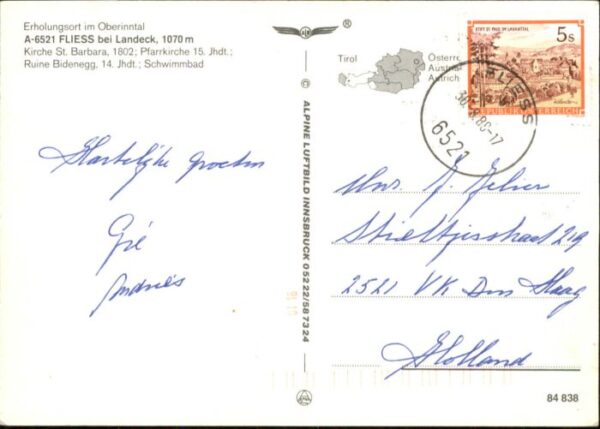 Erholungsort im Oberinntal
A-6521 FLIESS bei Landeck, 1070 m
Kirche St. Barbara, 1802; Pfarrkirche 15. Jhdt.;
Ruine Bidenegg, 14. Jhdt.; Schwimmbad
®
Tirol
Österre
Austria
Autrich
5s
STIFT ST. PAUL IM LAVANTTAL
REPUBLIK ÖSTERREICH
FLIESS
88-17
6521
© ALPINE LUFTBILD INNSBRUCK 05222/587324
Hartelijke groeten
Gré
Andriés
Mw. J.
Stieltjesstraat 219
2521 VK Den Haag
Holland
84 838